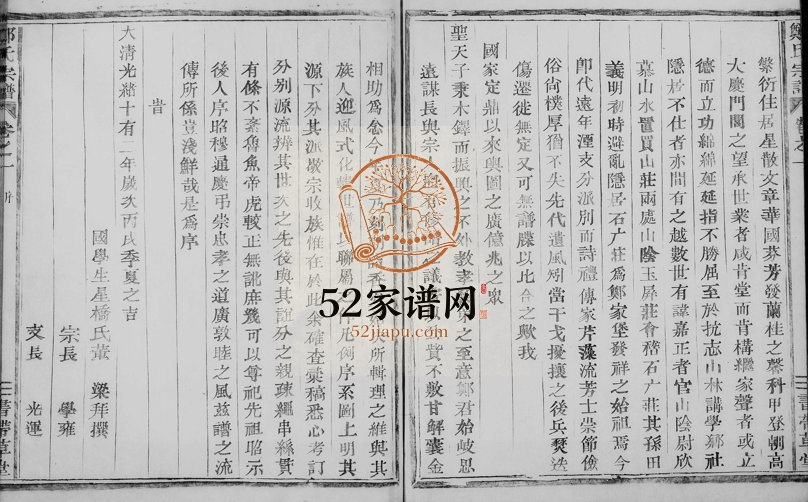 鄭氏宗譜
書帶草堂
繁衍住居星散文章華國芬芳發蘭桂之馨科甲登朝高
大慶門閭之望承世業者咸肯堂而肯構繼家聲者或立
德而立功綿綿延延指不勝屈至於抗志山林講學鄉社
隱居不仕者亦間有之越數世有諱嘉正者官山陰尉欣
慕山水置買山莊兩處山陰玉屏莊會稽石广莊其孫田
義明初時避亂隱居石广莊為鄭家堡發祥之始祖焉今
即代遠年湮支分派別而詩禮傳家芹藻流芳士崇節儉
俗尚樸厚猶不失先代遺風矧當干戈擾攘之後兵燹迭
傷遷徙無定又可無譜牒以此合之歟我
國家定鼎以來輿圖之廣億兆之眾
聖天子秉木鐸而振興之不外教孝 之至意鄭君始岐思
遠謀長與宗 議 貲不敷甘解囊金
相助為念今 乃 所輯理之維與其
族人迎風式化 聯 倒序系圖上明其
源下分其派敬宗收族惟在於此余確查彙稿悉心考訂
分别源流辨其世次之先後與其誼分之親疎繩串絲貫
有條不紊魚魯帝虎較正無訛庶幾可以尊祀先祖昭示
後人序昭穆通慶弔崇忠孝之道廣敦睦之風茲譜之流
傳所係豈淺鮮哉是為序
旹
大清光緒十有二年歲次丙戌季夏之吉
國學生星橋氏董 樑拜撰
宗長 學雍
支長 光運
鄭氏宗譜 卷之一
書帶草堂
52家谱网
52jiapu.com